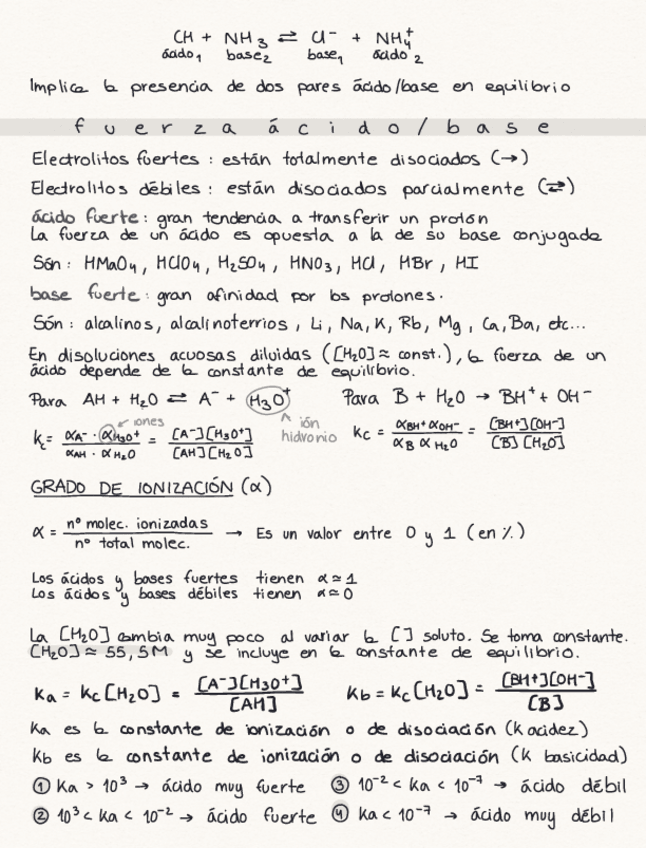 CH + NH₃ ⇌ Cl⁻ + NH₄⁺
ácido₁ base₂ base₁ ácido₂
Implica la presencia de dos pares ácido/base en equilibrio
fuerza ácido/base
Electrolitos fuertes : están totalmente disociados (→)
Electrolitos débiles : están disociados parcialmente (⇌)
ácido fuerte : gran tendencia a transferir un protón
La fuerza de un ácido es opuesta a la de su base conjugada
Són : HMaO₄ , HClO₄ , H₂SO₄ , HNO₃ , HCl , HBr , HI
base fuerte : gran afinidad por los protones.
Són : alcalinos, alcalinoterrios , Li, Na, K, Rb, Mg, Ca, Ba, etc...
En disoluciones acuosas diluidas ([H₂O] ≈ const.) , la fuerza de un
ácido depende de la constante de equilibrio.
Para AH + H₂O ⇌ A⁻ + H₃O⁺ Para B + H₂O → BH⁺ + OH⁻
iones
ión
hidronio
Kc = αA⁻ · αH₃O⁺ / αAH · αH₂O = [A⁻][H₃O⁺] / [AH][H₂O] Kc = αBH⁺ αOH⁻ / αB αH₂O = [BH⁺][OH⁻] / [B][H₂O]
GRADO DE IONIZACIÓN (α)
α = nº molec. ionizadas / nº total molec. → Es un valor entre 0 y 1 (en %)
Los ácidos y bases fuertes tienen α ≃ 1
Los ácidos y bases débiles tienen α ≃ 0
La [H₂O] cambia muy poco al variar la [ ] soluto. Se toma constante.
[H₂O] ≈ 55,5M y se incluye en la constante de equilibrio.
Ka = Kc [H₂O] = [A⁻][H₃O⁺] / [AH] Kb = Kc [H₂O] = [BH⁺][OH⁻] / [B]
Ka es la constante de ionización o de disociación (K acidez)
Kb es la constante de ionización o de disociación (K basicidad)
① Ka > 10³ → ácido muy fuerte ③ 10⁻² < Ka < 10⁻⁷ → ácido débil
② 10³ < Ka < 10⁻² → ácido fuerte ④ Ka < 10⁻⁷ → ácido muy débil